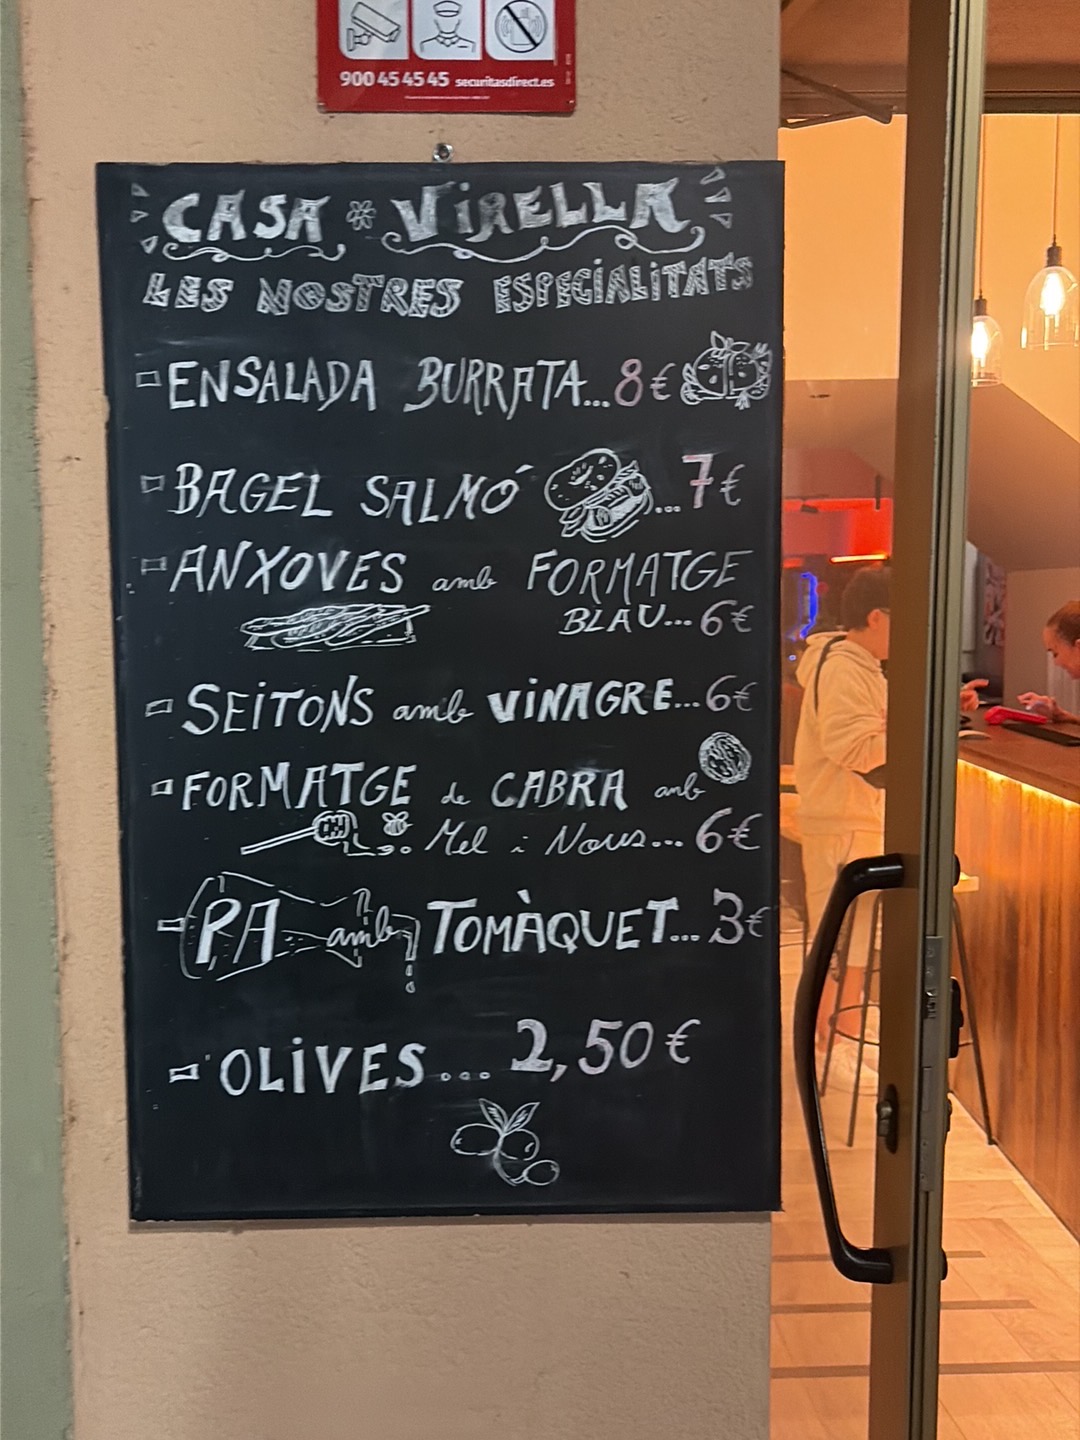 900 45 45 45 securitasdirect.es
CASA VIRELLA
LES NOSTRES ESPECIALITATS
ENSALADA BURRATA...8€
BAGEL SALMÓ ...7€
ANXOVES amb FORMATGE
BLAU...6€
SEITONS amb VINAGRE...6€
FORMATGE de CABRA amb
Mel i Nous...6€
PA amb TOMÀQUET...3€
OLIVES...2,50€